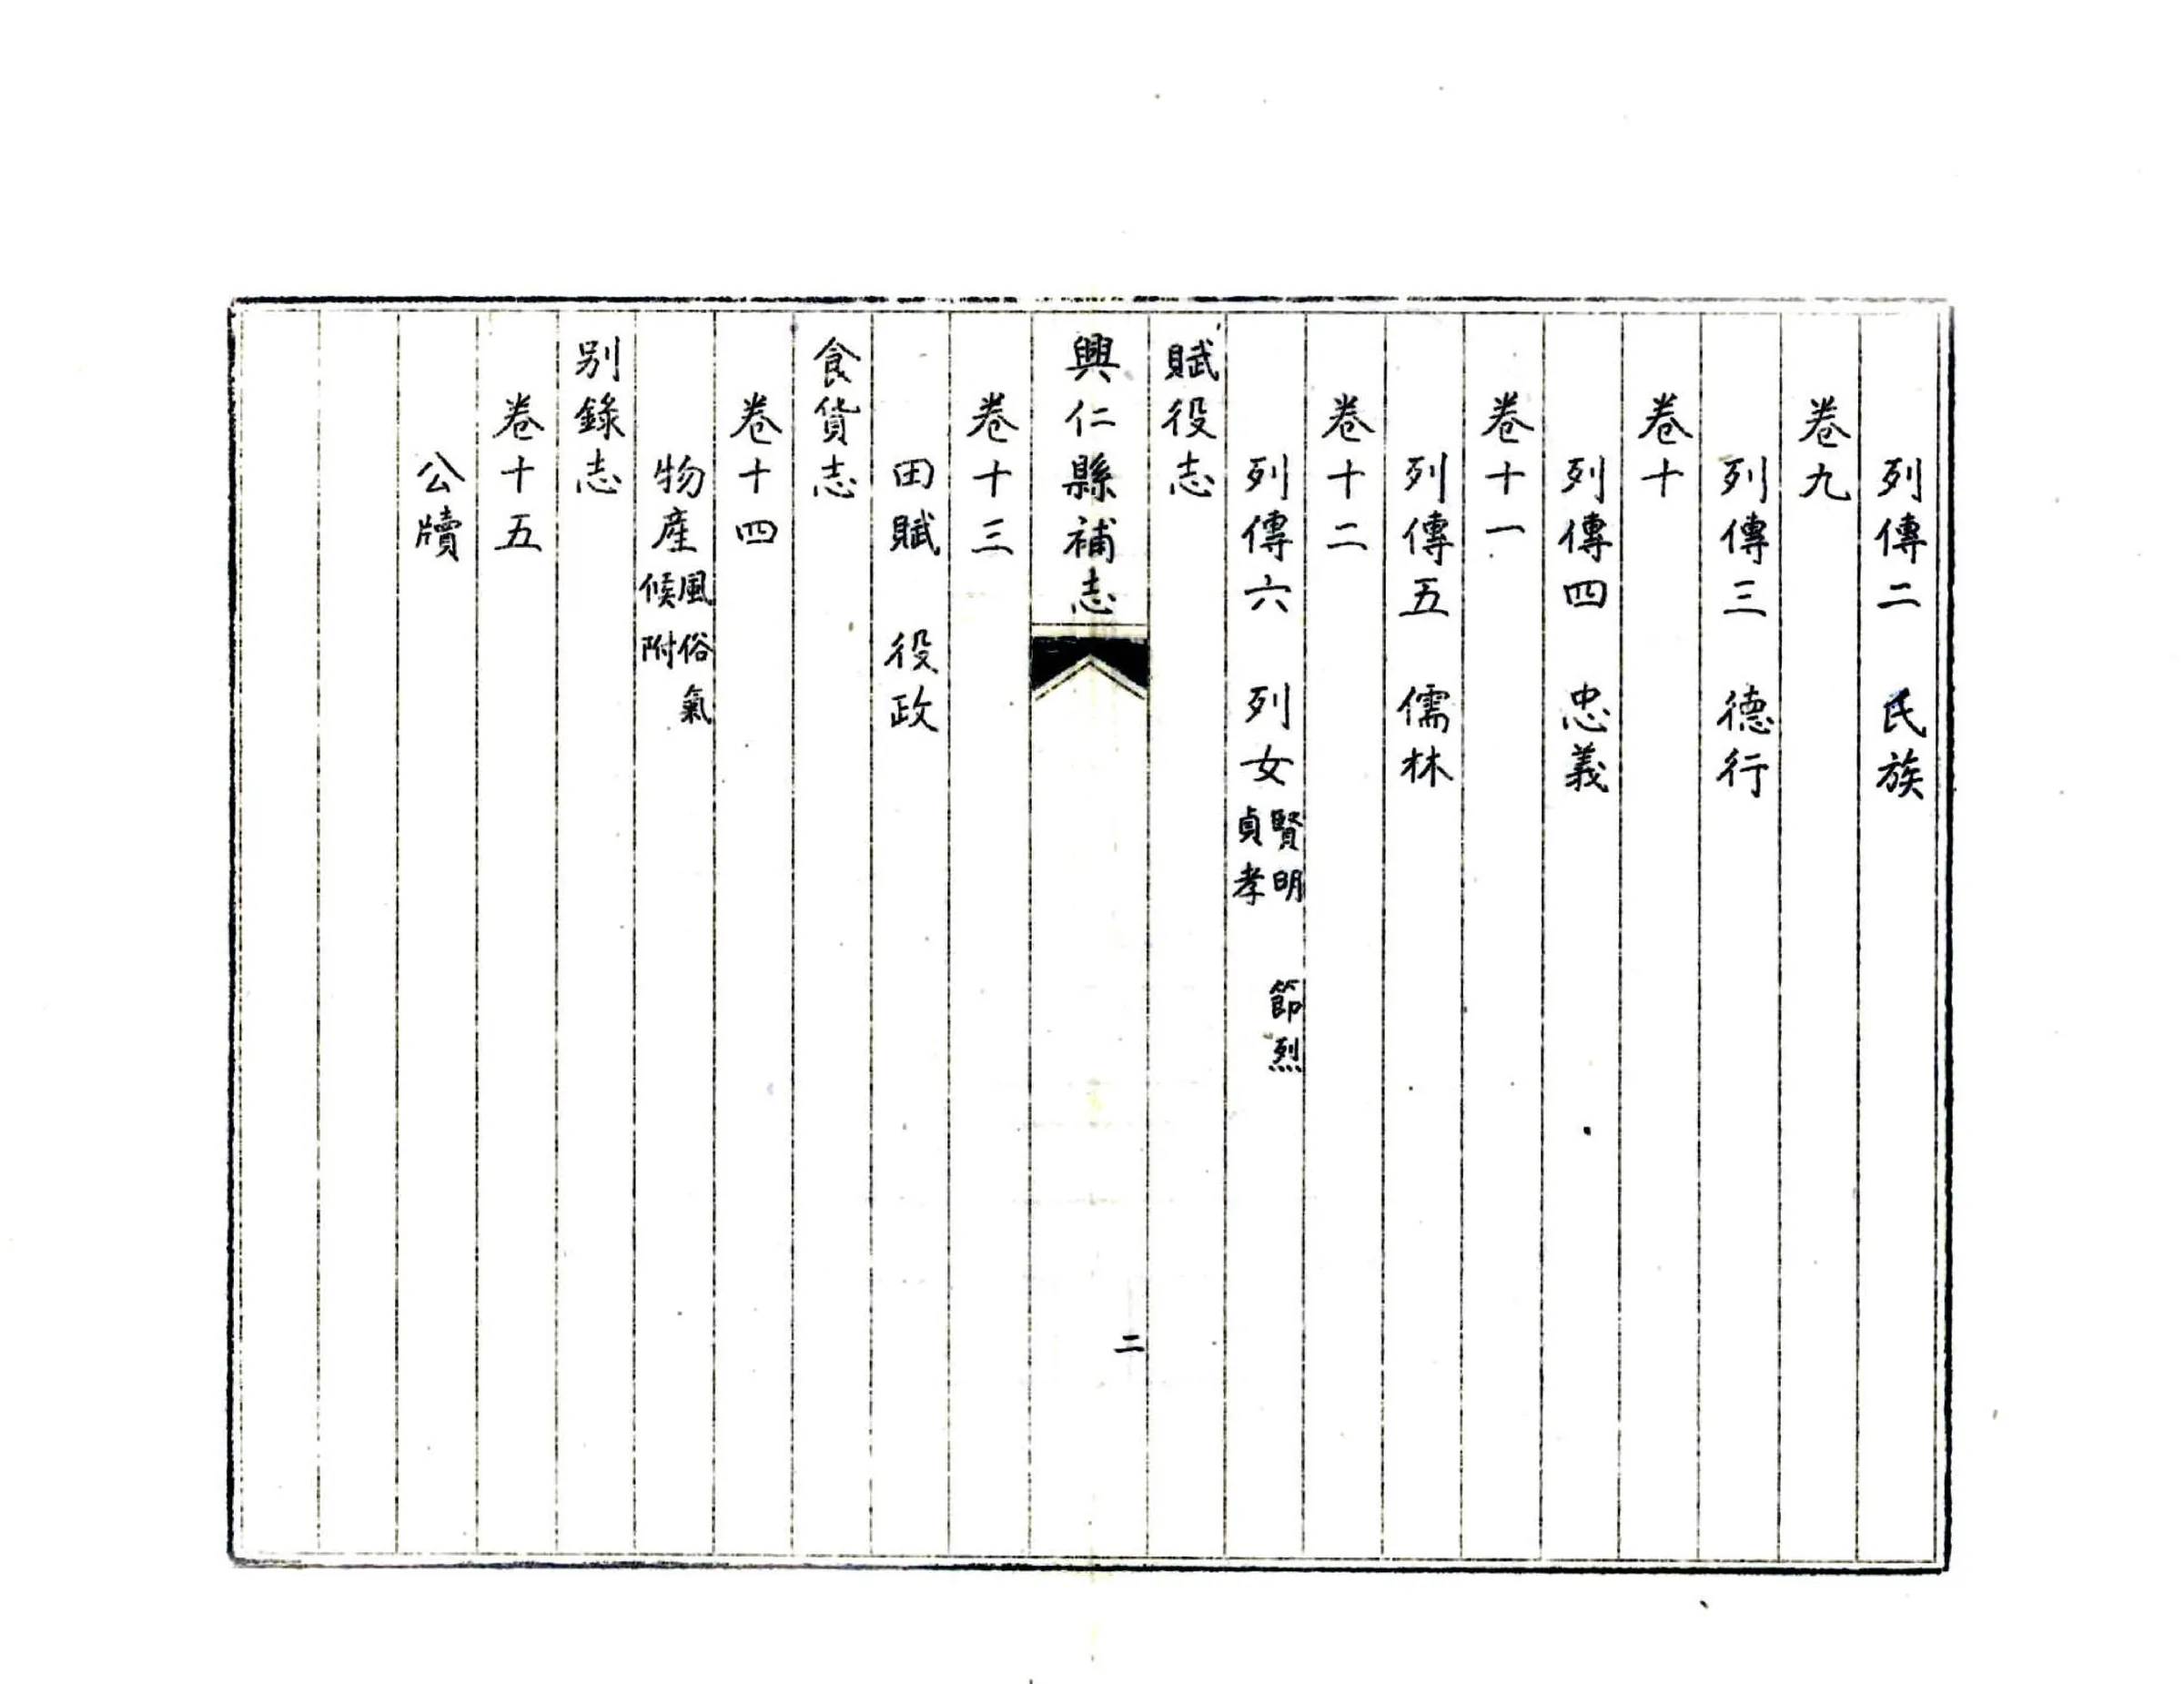 列傳二　氏族
卷九
列傳三　德行
卷十
列傳四　忠義
卷十一
列傳五　儒林
卷十二
列傳六　列女
賢明　節烈
貞孝
賦役志
興仁縣補志
二
卷十三
田賦　役政
食貨志
卷十四
物產
風俗氣
候附
别錄志
卷十五
公牘